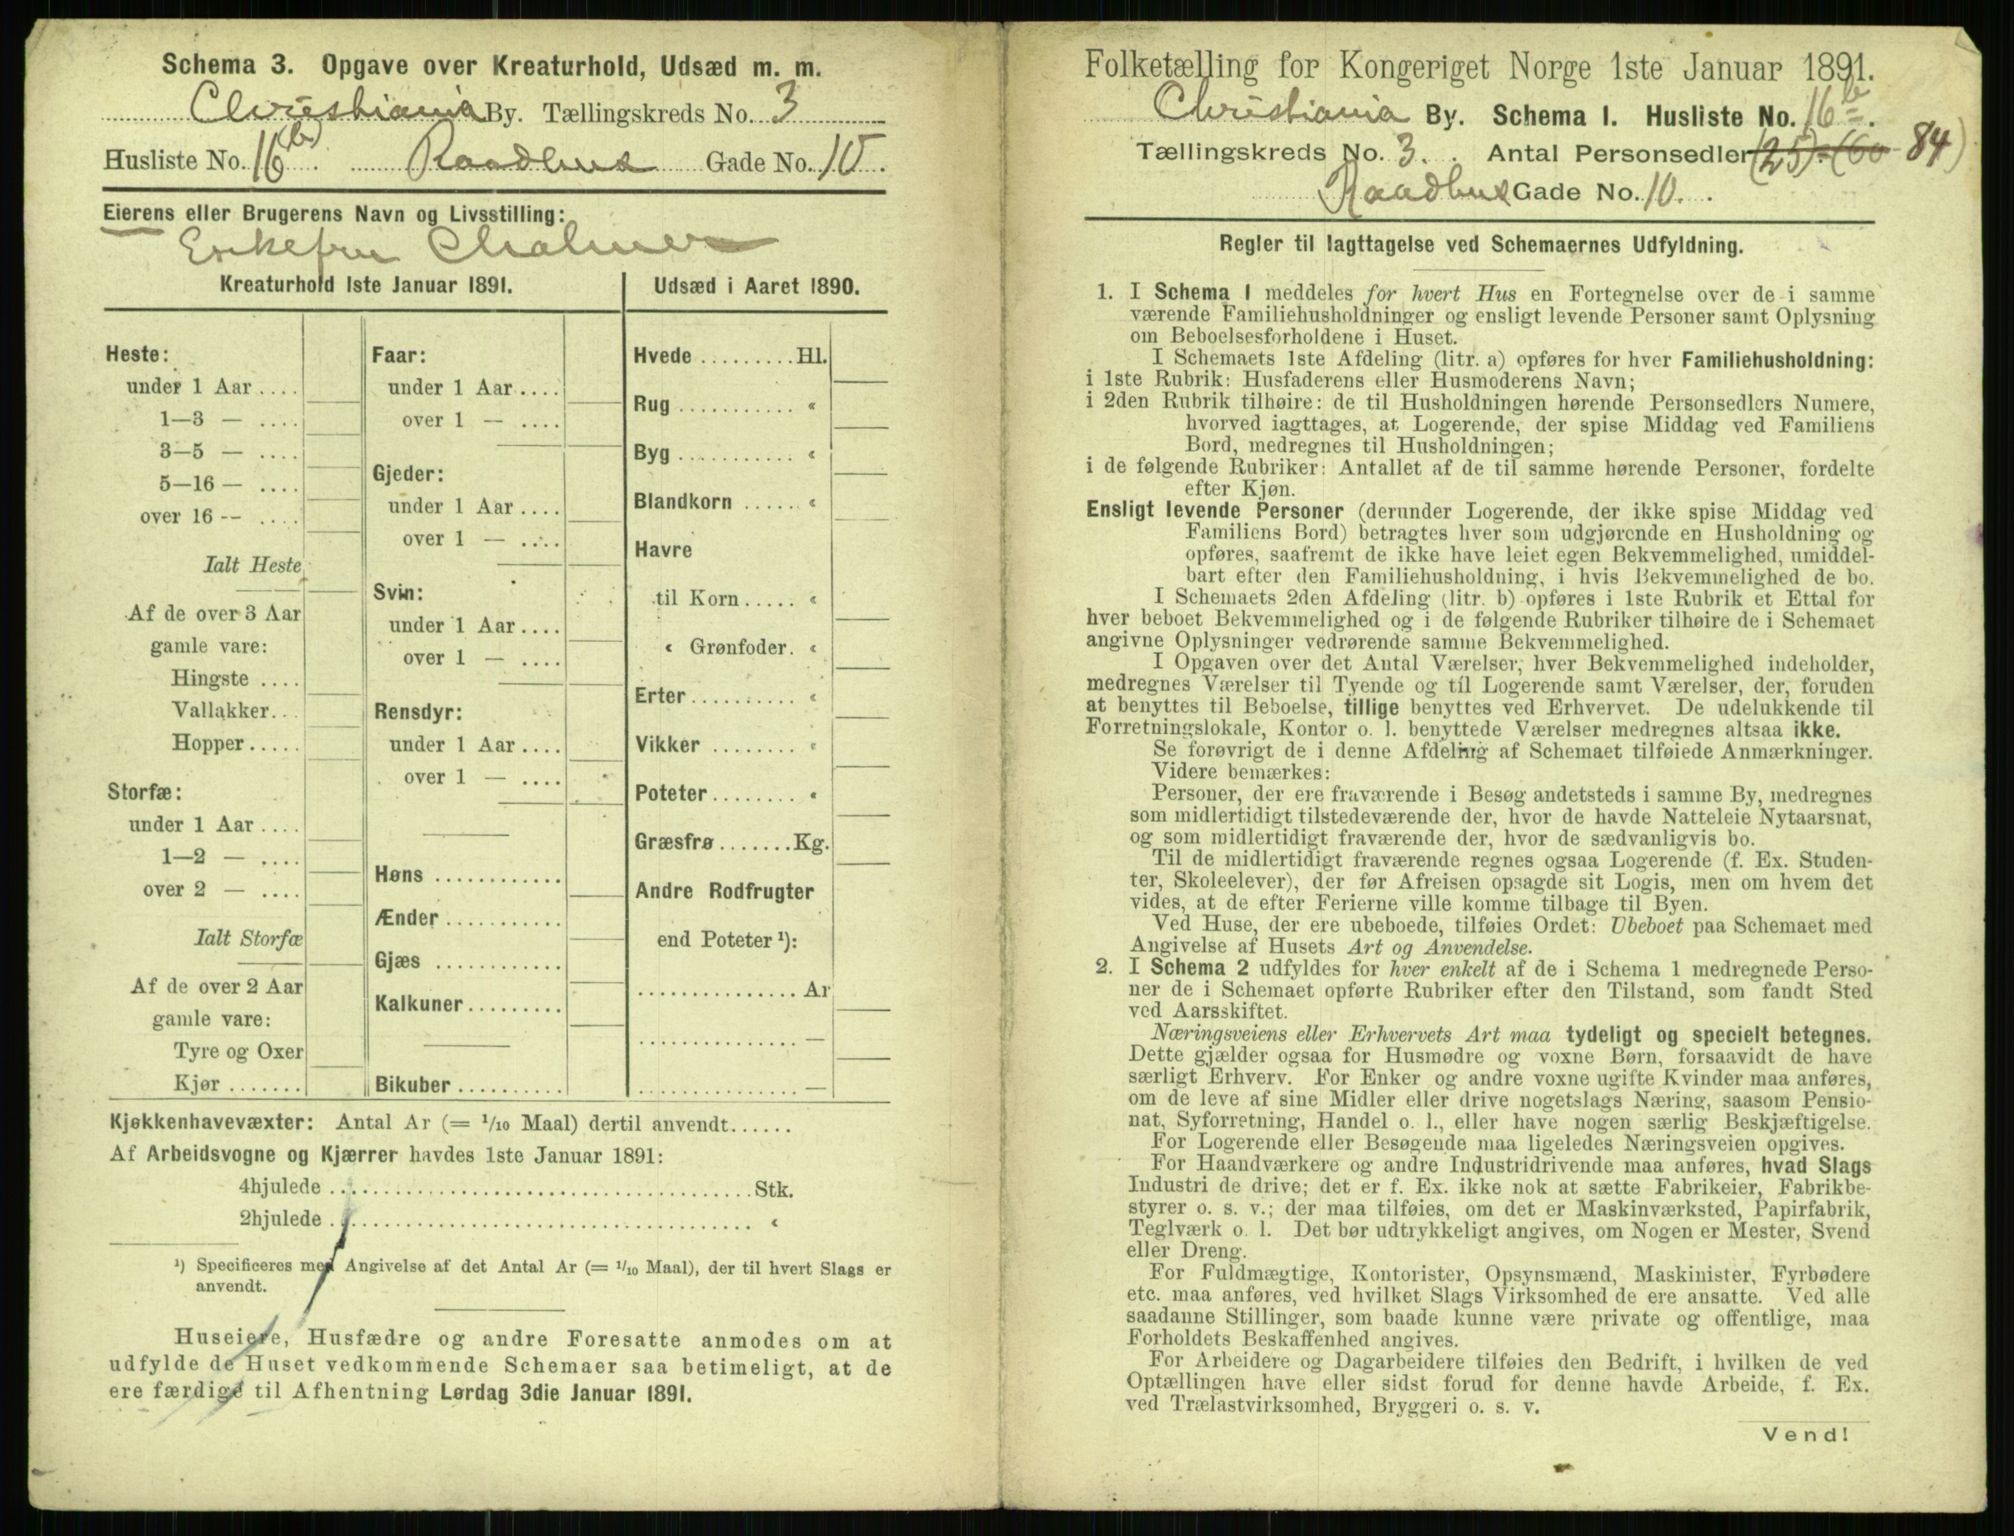 Schema 3. Opgave over Kreaturhold, Udsæd m. m.
Christiania By. Tællingskreds No. 3
Husliste No. 16 (b). Raadhus Gade No. 10.
Eierens eller Brugerens Navn og Livsstilling:
Enkefru Chalmer
Kreaturhold 1ste Januar 1891.
Heste:
under 1 Aar ....
1—3 — ....
3—5 — ....
5—16 — ....
over 16 — ....
Ialt Heste
Af de over 3 Aar
gamle vare:
Hingste ....
Vallakker...
Hopper.....
Storfæ:
under 1 Aar ....
1—2 — ....
over 2 — ....
Ialt Storfæ
Af de over 2 Aar
gamle vare:
Tyre og Oxer
Kjør .......
Faar:
under 1 Aar ....
over 1 — ....
Gjeder:
under 1 Aar ....
over 1 — ....
Svin:
under 1 Aar ....
over 1 — ....
Rensdyr:
under 1 Aar ....
over 1 — ....
Høns ............
Ænder ...........
Gjæs ............
Kalkuner.........
Bikuber ..........
Udsæd i Aaret 1890.
Hvede .........Hl.
Rug ........... «
Byg ........... «
Blandkorn ...... «
Havre
til Korn ..... «
« Grønfoder. «
Erter .......... «
Vikker ........ «
Poteter ........ «
Græsfrø .......Kg.
Andre Rodfrugter
end Poteter ¹):
............... Ar
............... —
............... —
Kjøkkenhavevæxter: Antal Ar (= 1/10 Maal) dertil anvendt......
Af Arbeidsvogne og Kjærrer havdes 1ste Januar 1891:
4hjulede ........................................ Stk.
2hjulede ........................................ «
¹) Specificeres med Angivelse af det Antal Ar (= 1/10 Maal), der til hvert Slags er
anvendt.
Huseiere, Husfædre og andre Foresatte anmodes om at
udfylde de Huset vedkommende Schemaer saa betimeligt, at de
ere færdige til Afhentning Lørdag 3die Januar 1891.
Folketælling for Kongeriget Norge 1ste Januar 1891.
Christiania By. Schema I. Husliste No. 16 b.
Tællingskreds No. 3. . Antal Personsedler (25). (60 84)
Raadhus Gade No. 10. .
Regler til Iagttagelse ved Schemaernes Udfyldning.
1. I Schema 1 meddeles for hvert Hus en Fortegnelse over de i samme
værende Familiehusholdninger og ensligt levende Personer samt Oplysning
om Beboelsesforholdene i Huset.
I Schemaets 1ste Afdeling (litr. a) opføres for hver Familiehusholdning:
i 1ste Rubrik: Husfaderens eller Husmoderens Navn;
i 2den Rubrik tilhøire: de til Husholdningen hørende Personsedlers Numere,
hvorved iagttages, at Logerende, der spise Middag ved Familiens
Bord, medregnes til Husholdningen;
i de følgende Rubriker: Antallet af de til samme hørende Personer, fordelte
efter Kjøn.
Ensligt levende Personer (derunder Logerende, der ikke spise Middag ved
Familiens Bord) betragtes hver som udgjørende en Husholdning og
opføres, saafremt de ikke have leiet egen Bekvemmelighed, umiddel-
bart efter den Familiehusholdning, i hvis Bekvemmelighed de bo.
I Schemaets 2den Afdeling (litr. b) opføres i 1ste Rubrik et Ettal for
hver beboet Bekvemmelighed og i de følgende Rubriker tilhøire de i Schemaet
angivne Oplysninger vedrørende samme Bekvemmelighed.
I Opgaven over det Antal Værelser, hver Bekvemmelighed indeholder,
medregnes Værelser til Tyende og til Logerende samt Værelser, der, foruden
at benyttes til Beboelse, tillige benyttes ved Erhvervet. De udelukkende til
Forretningslokale, Kontor o. l. benyttede Værelser medregnes altsaa ikke.
Se forøvrigt de i denne Afdeling af Schemaet tilføiede Anmærkninger.
Videre bemærkes:
Personer, der ere fraværende i Besøg andetsteds i samme By, medregnes
som midlertidigt tilstedeværende der, hvor de havde Natteleie Nytaarsnat,
og som midlertidigt fraværende der, hvor de sædvanligvis bo.
Til de midlertidigt fraværende regnes ogsaa Logerende (f. Ex. Studen-
ter, Skoleelever), der før Afreisen opsagde sit Logis, men om hvem det
vides, at de efter Ferierne ville komme tilbage til Byen.
Ved Huse, der ere ubeboede, tilføies Ordet: Ubeboet paa Schemaet med
Angivelse af Husets Art og Anvendelse.
2. I Schema 2 udfyldes for hver enkelt af de i Schema 1 medregnede Perso-
ner de i Schemaet opførte Rubriker efter den Tilstand, som fandt Sted
ved Aarsskiftet.
Næringsveiens eller Erhvervets Art maa tydeligt og specielt betegnes.
Dette gjælder ogsaa for Husmødre og voxne Børn, forsaavidt de have
særligt Erhverv. For Enker og andre voxne ugifte Kvinder maa anføres,
om de leve af sine Midler eller drive nogetslags Næring, saasom Pensio-
nat, Syforretning, Handel o. l., eller have nogen særlig Beskjæftigelse.
For Logerende eller Besøgende maa ligeledes Næringsveien opgives.
For Haandværkere og andre Industridrivende maa anføres, hvad Slags
Industri de drive; det er f. Ex. ikke nok at sætte Fabrikeier, Fabrikbe-
styrer o. s. v.; der maa tilføies, om det er Maskinværksted, Papirfabrik,
Teglværk o. l. Det bør udtrykkeligt angives, om Nogen er Mester, Svend
eller Dreng.
For Fuldmægtige, Kontorister, Opsynsmænd, Maskinister, Fyrbødere
etc. maa anføres, ved hvilket Slags Virksomhed de ere ansatte. Ved alle
saadanne Stillinger, som baade kunne være private og offentlige, maa
Forholdets Beskaffenhed angives.
For Arbeidere og Dagarbeidere tilføies den Bedrift, i hvilken de ved
Optællingen have eller sidst forud for denne havde Arbeide, f. Ex.
ved Trælastvirksomhed, Bryggeri o. s. v.
Vend!